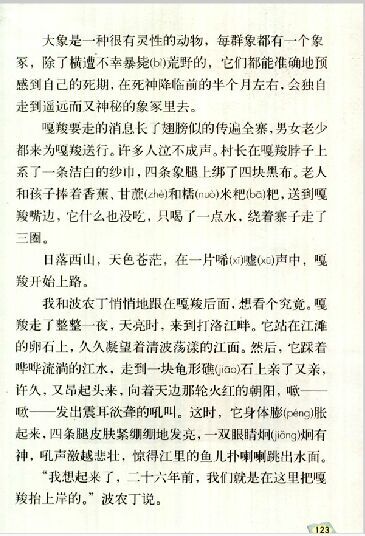 大象是一种很有灵性的动物，每群象都有一个象
冢，除了横遭不幸暴毙(bì)荒野的，它们都能准确地预
感到自己的死期，在死神降临前的半个月左右，会独自
走到遥远而又神秘的象冢里去。
嘎羧要走的消息长了翅膀似的传遍全寨，男女老少
都来为嘎羧送行。许多人泣不成声。村长在嘎羧脖子上
系了一条洁白的纱巾，四条象腿上绑了四块黑布。老人
和孩子捧着香蕉、甘蔗(zhè)和糯(nuò)米粑(bā)粑，送到嘎
羧嘴边，它什么也没吃，只喝了一点水，绕着寨子走了
三圈。
日落西山，天色苍茫，在一片唏(xī)嘘(xū)声中，嘎
羧开始上路。
我和波农丁悄悄地跟在嘎羧后面，想看个究竟。嘎
羧走了整整一夜，天亮时，来到打洛江畔。它站在江滩
的卵石上，久久凝望着清波荡漾的江面。然后，它踩着
哗哗流淌的江水，走到一块龟形礁(jiāo)石上亲了又亲，
许久，又昂起头来，向着天边那轮火红的朝阳，嗽——
嗽——发出震耳欲聋的吼叫。这时，它身体膨(péng)胀
起来，四条腿皮肤紧绷绷地发亮，一双眼睛炯(jiǒng)炯有
神，吼声激越悲壮，惊得江里的鱼儿扑喇喇跳出水面。
“我想起来了，二十六年前，我们就是在这里把嘎
羧抬上岸的。”波农丁说。
123